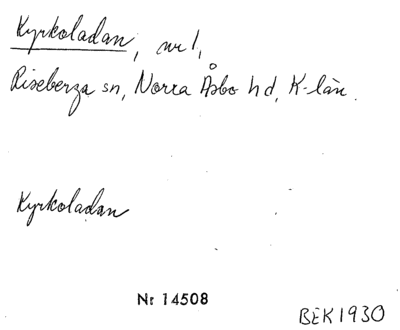 Kyrkoladan, nr 1,
Riseberga sn, Norra Åsbo hd, K-län.
Kyrkoladan
Nr 14508
BEK 1930